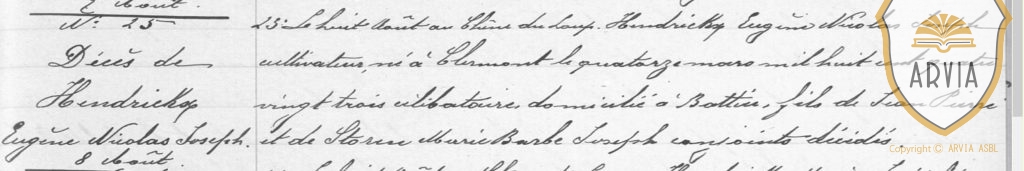 2 Août.
N° 25
Décès de
Hendrickx
Eugène Nicolas Joseph.
8 Août.
25: Le huit Août au Chêne du loup. Hendrickx Eugène Nicolas Joseph
cultivateur, né à Clermont le quatorze mars mil huit cent quatre
vingt trois célibataire, domicilié à Battice, fils de Jean Pierre
et de Storen Marie Barbe Joseph conjoints décédés.
ARVIA
Copyright © ARVIA ASBL